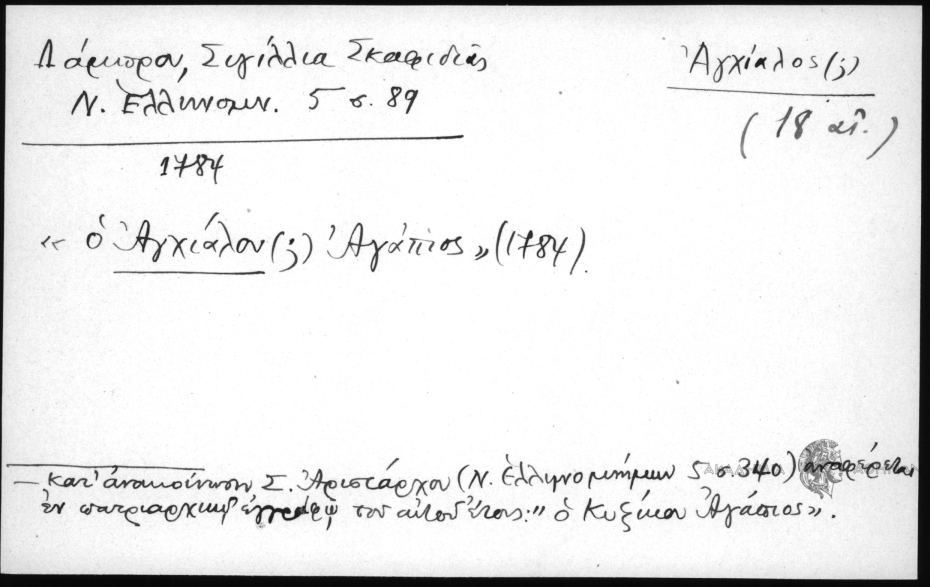 Λάμπρου, Σιγίλλια Σκαφιδιᾶς
Ν. Ἑλληνομν. 5 σ. 89
Ἀγχίαλος (;)
(18 αἰ.)
1784
« ὁ Ἀγχιάλου (;) Ἀγάπιος » (1784).
— Κατ' ἀνακοίνωσιν Σ. Ἀριστάρχου (Ν. Ἑλληνομνήμων 5 σ. 340) ἀναφέρεται
ἐν πατριαρχικῷ ἐγγράφῳ τοῦ αὐτοῦ ἔτους: " ὁ Κυζίκου Ἀγάπιος ».